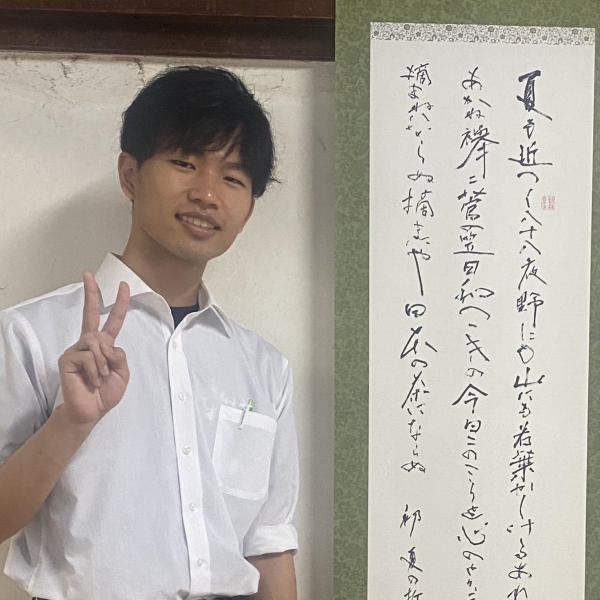 夏も近つく八十八夜野にも山にも若葉かしけるあれ
あかね襷ニ菅笠日和つゝきの今日このころを心の
摘まねはならぬ摘まにや日本の茶にならぬ 夏の